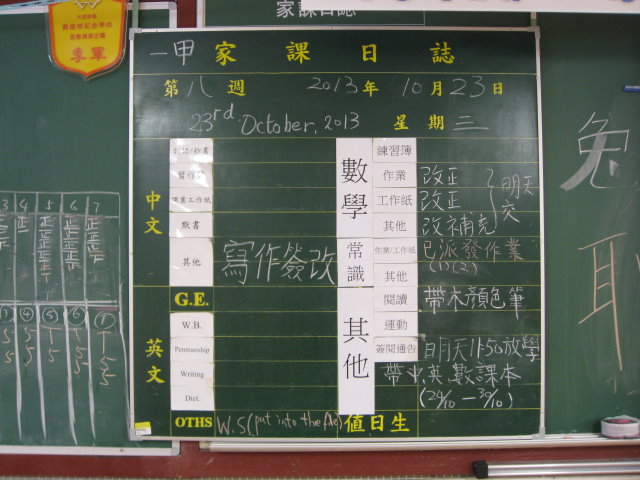 家課日誌
季軍
一甲 家課日誌
第八週 2013年10月23日
23rd October, 2013 星期三
中文
習作
作業工作紙
默書
其他 寫作簽改
G.E.
英文
W.B.
Penmanship
Writing
Dict.
OTHS W.S(put into the file)
數學
練習簿
作業 改正
工作紙 改正
其他 改補充
明天交
常識
作業/工作紙 已派發作業
(1)(2)
其他
其他
閱讀 帶木顏色筆
運動
簽閱通告 明天11:50放學
帶中,英,數課本
(24/10—30/10)
值日生
3 4 5 6 7
兔
耳